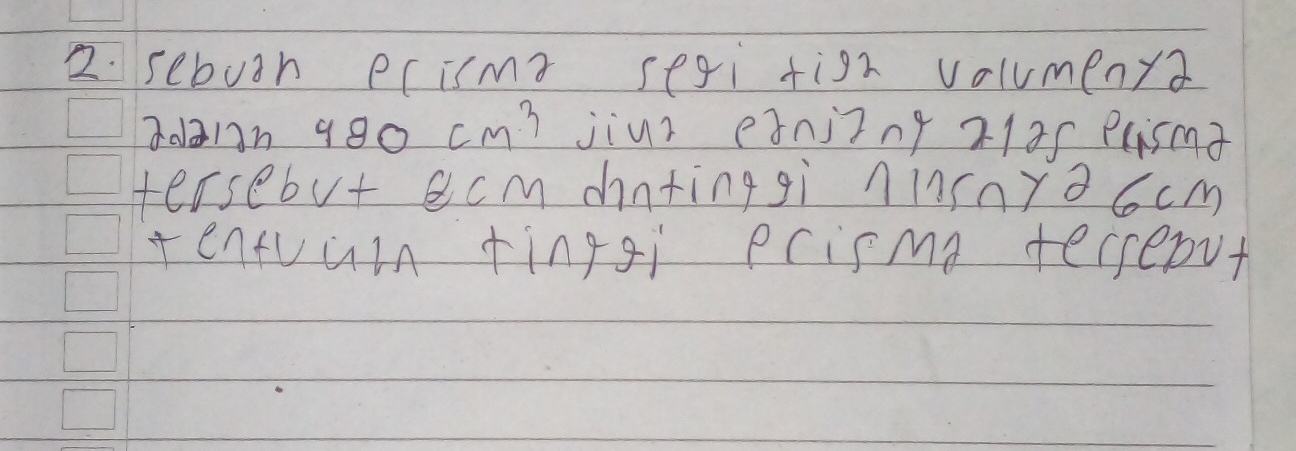 2. sebuah prisma segi tiga valumenya
adalah 480 cm³ jika panjang alas prisma
tersebut 8cm dan tinggi alasnya 6cm
tentukan tinggi prisma tersebut